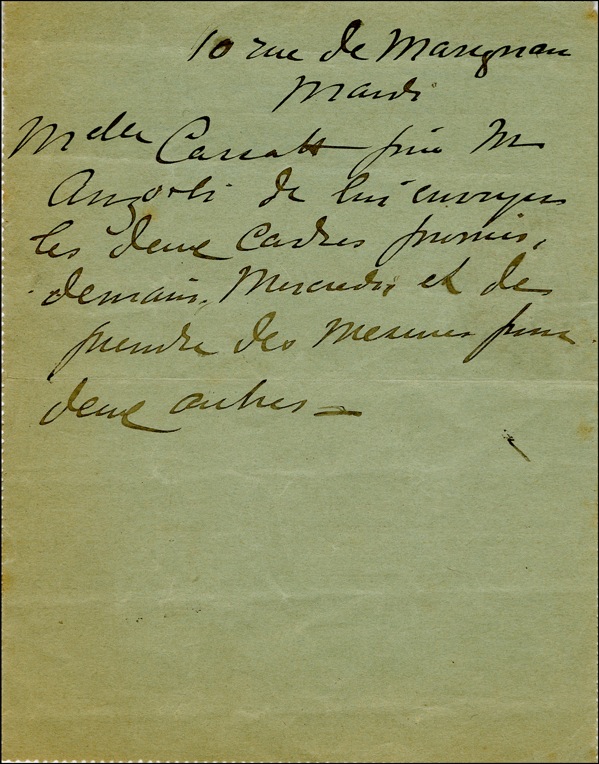 10 rue de Marignan
Mardi
Melle Cassatt prie M
Angorli de lui envoyer
les deux cadres promis,
demain, Mercredi et de
prendre des mesures pour
deux autres —